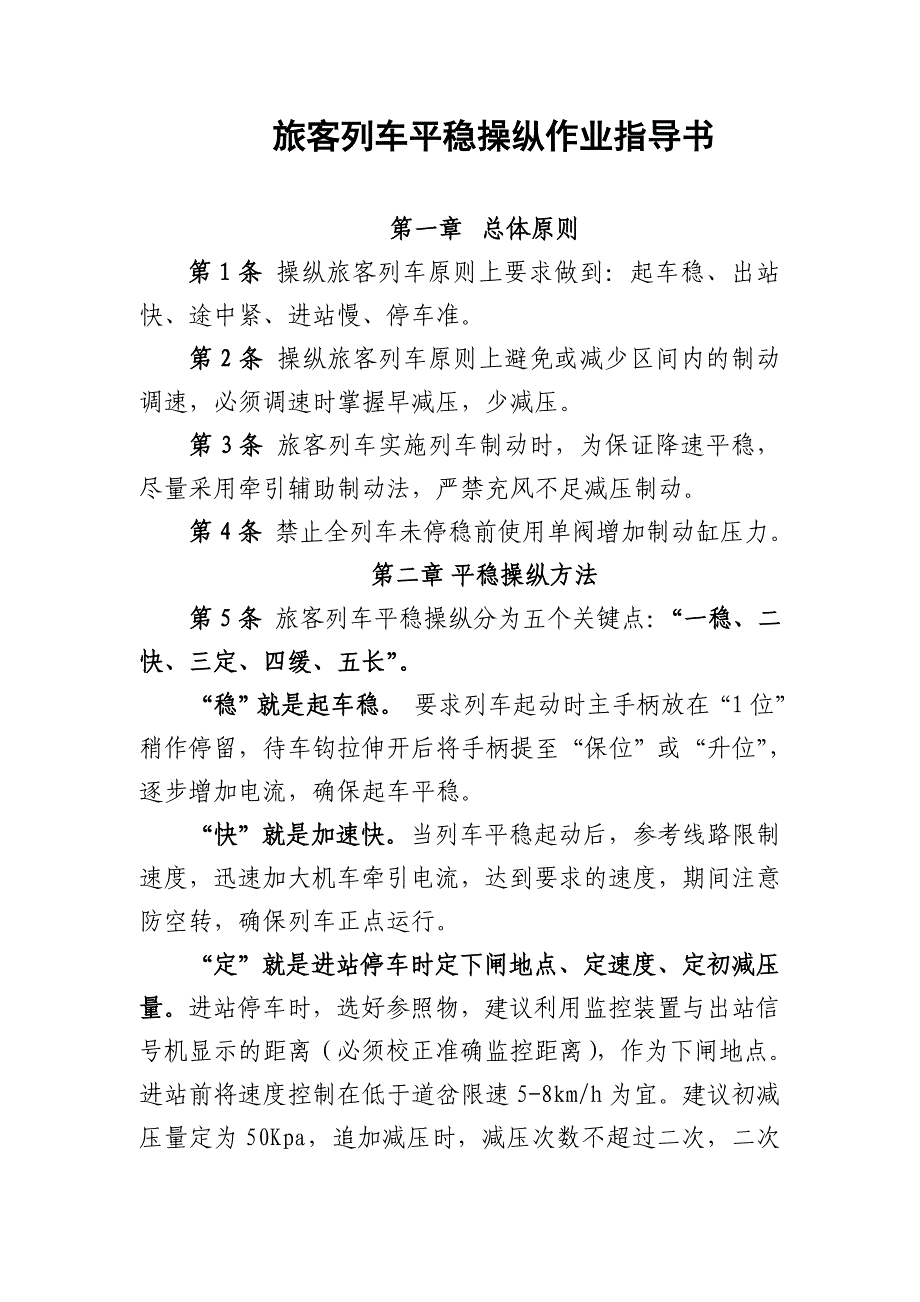 旅客列车平稳操纵作业指导书
第一章 总体原则
第1条 操纵旅客列车原则上要求做到：起车稳、出站
快、途中紧、进站慢、停车准。
第2条 操纵旅客列车原则上避免或减少区间内的制动
调速，必须调速时掌握早减压，少减压。
第3条 旅客列车实施列车制动时，为保证降速平稳，
尽量采用牵引辅助制动法，严禁充风不足减压制动。
第4条 禁止全列车未停稳前使用单阀增加制动缸压力。
第二章 平稳操纵方法
第5条 旅客列车平稳操纵分为五个关键点：“一稳、二
快、三定、四缓、五长”。
“稳”就是起车稳。 要求列车起动时主手柄放在“1位”
稍作停留，待车钩拉伸开后将手柄提至“保位”或“升位”，
逐步增加电流，确保起车平稳。
“快”就是加速快。当列车平稳起动后，参考线路限制
速度，迅速加大机车牵引电流，达到要求的速度，期间注意
防空转，确保列车正点运行。
“定”就是进站停车时定下闸地点、定速度、定初减压
量。进站停车时，选好参照物，建议利用监控装置与出站信
号机显示的距离（必须校正准确监控距离），作为下闸地点。
进站前将速度控制在低于道岔限速5-8km/h为宜。建议初减
压量定为50Kpa，追加减压时，减压次数不超过二次，二次